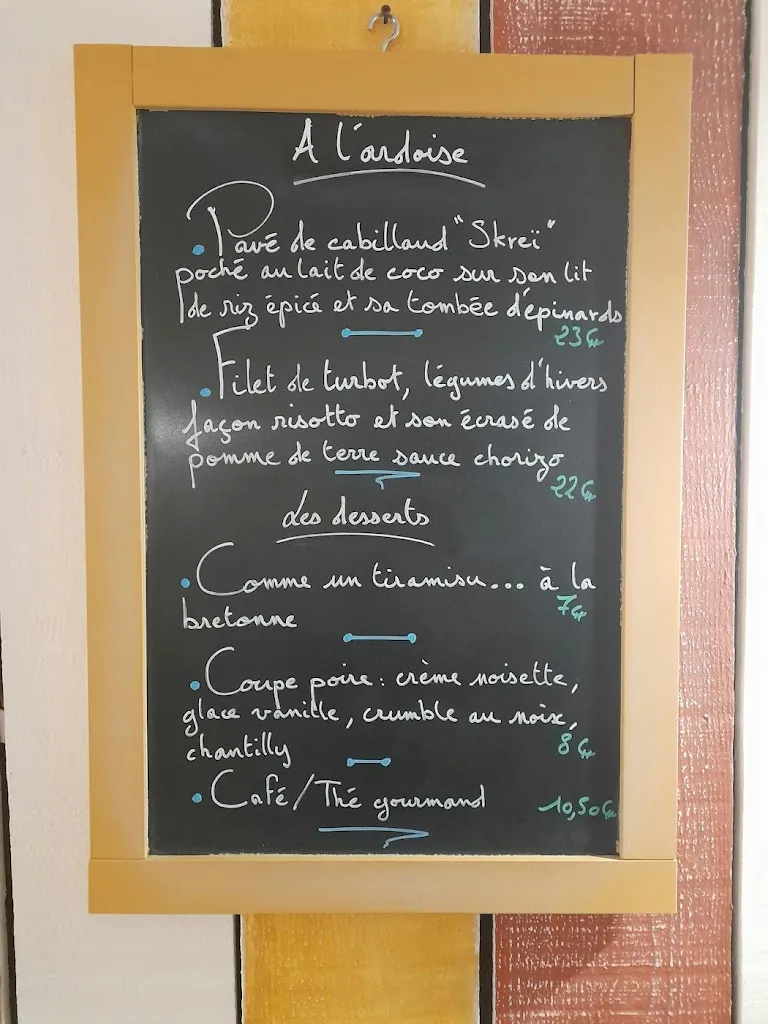 A l'ardoise
Pavé de cabillaud "Skreï"
poché au lait de coco sur son lit
de riz épicé et sa tombée d'épinards
23€
Filet de turbot, légumes d'hivers
façon risotto et son écrasé de
pomme de terre sauce chorizo
22€
Les desserts
Comme un tiramisu... à la
7€
bretonne
Coupe poire: crème noisette,
glace vanille, crumble au noix,
chantilly 8€
Café/Thé gourmand 10,50€